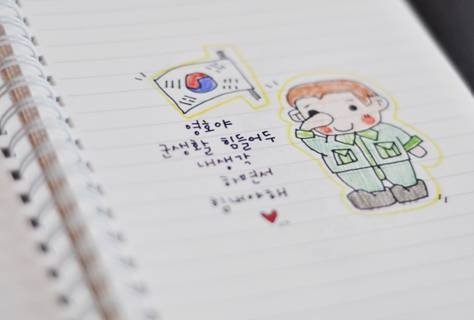 영호야
군생활 힘들어두
내생각
하면서
힘내야해